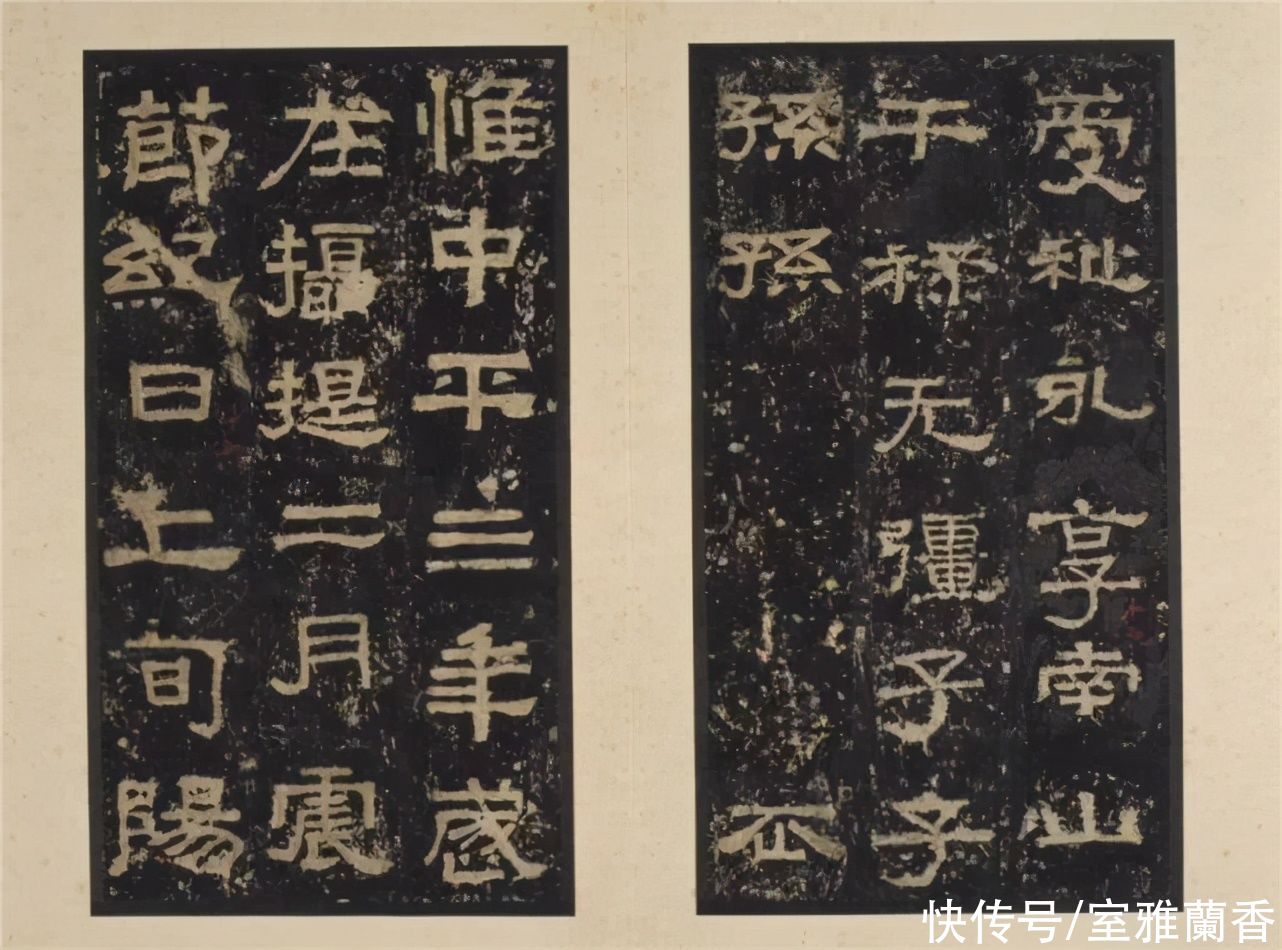 受祉永享南山
干祿无彊子子
孫孫
惟中平三年歲
在攝提二月震
節紀日上旬陽
快传号/室雅蘭香